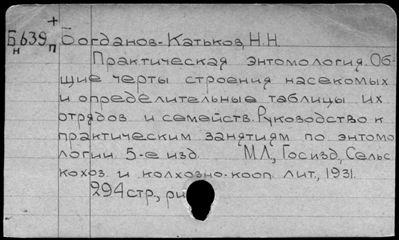 +
Б639 Богданов-Катьков, Н.Н.
н п
Практическая энтомология. Об-
щие черты строения насекомых
и определительные таблицы их
отрядов и семейств. Руководство к
практическим занятиям по энтомо-
логии 5-е изд. МЛ, Госизд, Сельс
кохоз. и колхозно-кооп. лит., 1931.
294 стр, ри